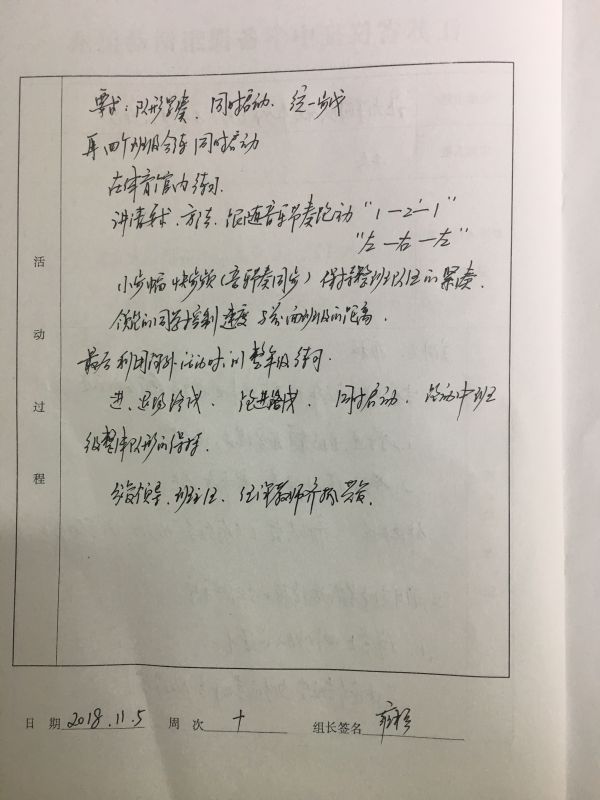 要求：队形紧凑、同时启动、统一步伐
再四个班级合在同时启动
在体育馆内练习.
讲清要求、方法、跟随音乐节奏跑动 "1—2—1"
"左—右—左"
小步幅 快步频（音乐节奏同步）保持整班队伍的紧凑.
领跑的同学控制速度 与前面班级的距离.
最后利用课外活动时间整年级练习.
进、退场路线、跑进路线、同时启动、跑动中班
级整体队形的保持.
年级领导、班主任、任课教师齐抓共管.
活动过程
日 期 2018.11.5 周 次 十 组长签名